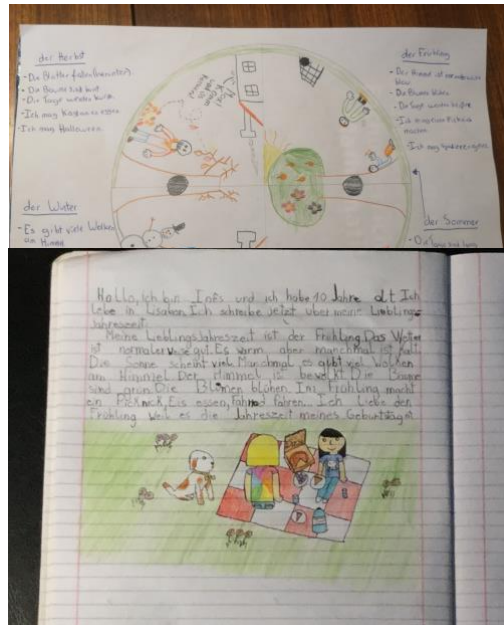 der Herbst
- Die Blätter fallen (herunter).
- Die Bäume sind bunt
- Die Tage werden kurz
- Ich mag Kastanien essen
- Ich mag Halloween
der Frühling
- Der Rasen ist
- Die Blumen blühen
- Die Tage werden
- Ich mag ein Picknick
machen
- Ich mag
der Winter
- Es gibt viele Wolken
am Himmel
der Sommer
Hallo, ich bin Inês und ich habe 10 Jahre alt Ich
lebe in Lisabon. Ich schreibe jetzt über meine Lieblings
Jahreszeit.
Meine Lieblingsjahreszeit ist der Frühling. Das Wetter
ist normalerweise gut. Es warm aber manchmal ist kalt.
Die Sonne scheint viel. Manchmal es gibt viel Wolken
am Himmel. Der Himmel ist bewölkt. Die Bäume
sind grün. Die Blümen blühen. Im Frühling macht
ein Picknick, Eis essen, fahrrad fahren. Ich liebe den
Frühling weil es die Jahreszeit meines Geburtstages